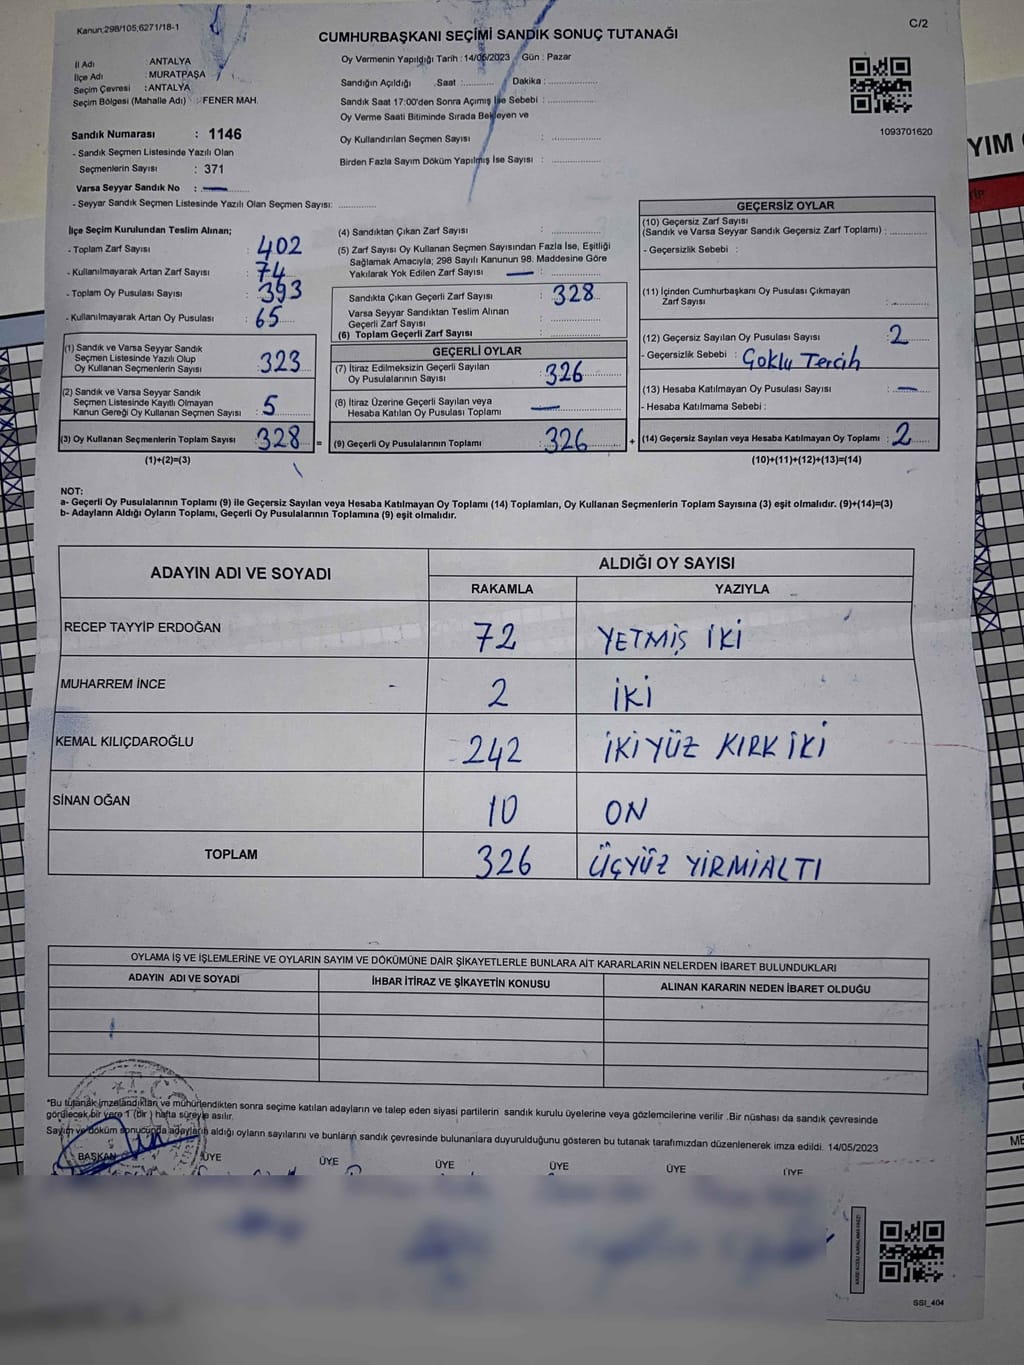 Kanun;298/105;6271/18-1
C/2
CUMHURBAŞKANI SEÇİMİ SANDIK SONUÇ TUTANAĞI
İl Adı : ANTALYA
İlçe Adı : MURATPAŞA
Seçim Çevresi : ANTALYA
Seçim Bölgesi (Mahalle Adı) : FENER MAH.
Sandık Numarası : 1146
- Sandık Seçmen Listesinde Yazılı Olan
Seçmenlerin Sayısı : 371
Varsa Seyyar Sandık No : —
- Seyyar Sandık Seçmen Listesinde Yazılı Olan Seçmen Sayısı: ................
Oy Vermenin Yapıldığı Tarih : 14/05/2023 Gün : Pazar
Sandığın Açıldığı Saat :............ Dakika : ..............
Sandık Saat 17:00'den Sonra Açımış İse Sebebi : ..............
Oy Verme Saati Bitiminde Sırada Bekleyen ve
Oy Kullandırılan Seçmen Sayısı : ..............
Birden Fazla Sayım Döküm Yapılmış İse Sayısı : ..............
1093701620
YIM
İlçe Seçim Kurulundan Teslim Alınan;
- Toplam Zarf Sayısı : 402
- Kullanılmayarak Artan Zarf Sayısı : 74
- Toplam Oy Pusulası Sayısı : 393
- Kullanılmayarak Artan Oy Pusulası : 65
(1) Sandık ve Varsa Seyyar Sandık
Seçmen Listesinde Yazılı Olup
Oy Kullanan Seçmenlerin Sayısı : 323
(2) Sandık ve Varsa Seyyar Sandık
Seçmen Listesinde Kayıtlı Olmayan
Kanun Gereği Oy Kullanan Seçmen Sayısı : 5
(3) Oy Kullanan Seçmenlerin Toplam Sayısı : 328 =
(1)+(2)=(3)
(4) Sandıktan Çıkan Zarf Sayısı : ..............
(5) Zarf Sayısı Oy Kullanan Seçmen Sayısından Fazla İse, Eşitliği
Sağlamak Amacıyla; 298 Sayılı Kanunun 98. Maddesine Göre
Yakılarak Yok Edilen Zarf Sayısı — : ..............
Sandıkta Çıkan Geçerli Zarf Sayısı : 328
Varsa Seyyar Sandıktan Teslim Alınan
Geçerli Zarf Sayısı : ..............
(6) Toplam Geçerli Zarf Sayısı : ..............
GEÇERLİ OYLAR
(7) İtiraz Edilmeksizin Geçerli Sayılan
Oy Pusulalarının Sayısı : 326
(8) İtiraz Üzerine Geçerli Sayılan veya
Hesaba Katılan Oy Pusulası Toplamı : —
(9) Geçerli Oy Pusulalarının Toplamı : 326 +
GEÇERSİZ OYLAR
(10) Geçersiz Zarf Sayısı
(Sandık ve Varsa Seyyar Sandık Geçersiz Zarf Toplamı) : ..........
- Geçersizlik Sebebi :
(11) İçinden Cumhurbaşkanı Oy Pusulası Çıkmayan
Zarf Sayısı : ..........
(12) Geçersiz Sayılan Oy Pusulası Sayısı : 2
- Geçersizlik Sebebi : Çoklu Tercih
(13) Hesaba Katılmayan Oy Pusulası Sayısı : —
- Hesaba Katılmama Sebebi :
(14) Geçersiz Sayılan veya Hesaba Katılmayan Oy Toplamı : 2
(10)+(11)+(12)+(13)=(14)
NOT:
a- Geçerli Oy Pusulalarının Toplamı (9) ile Geçersiz Sayılan veya Hesaba Katılmayan Oy Toplamı (14) Toplamları, Oy Kullanan Seçmenlerin Toplam Sayısına (3) eşit olmalıdır. (9)+(14)=(3)
b- Adayların Aldığı Oyların Toplamı, Geçerli Oy Pusulalarının Toplamına (9) eşit olmalıdır.
ADAYIN ADI VE SOYADI
ALDIĞI OY SAYISI
RAKAMLA YAZIYLA
RECEP TAYYİP ERDOĞAN 72 YETMİŞ İKİ
MUHARREM İNCE 2 İKİ
KEMAL KILIÇDAROĞLU 242 İKİYÜZ KIRK İKİ
SİNAN OĞAN 10 ON
TOPLAM 326 ÜÇYÜZ YİRMİALTI
OYLAMA İŞ VE İŞLEMLERİNE VE OYLARIN SAYIM VE DÖKÜMÜNE DAİR ŞİKAYETLERLE BUNLARA AİT KARARLARIN NELERDEN İBARET BULUNDUKLARI
ADAYIN ADI VE SOYADI İHBAR İTİRAZ VE ŞİKAYETİN KONUSU ALINAN KARARIN NEDEN İBARET OLDUĞU
*Bu tutanak imzelandıktan ve mühürlendikten sonra seçime katılan adayların ve talep eden siyasi partilerin sandık kurulu üyelerine veya gözlemcilerine verilir .Bir nüshası da sandık çevresinde
görülecek bir yere 1 (bir ) hafta süreyle asılır.
Sayım ve döküm sonucunda adayların aldığı oyların sayılarını ve bunların sandık çevresinde bulunanlara duyurulduğunu gösteren bu tutanak tarafımızdan düzenlenerek imza edildi. 14/05/2023
BAŞKAN ÜYE ÜYE ÜYE ÜYE ÜYE ÜYE
SSI_404